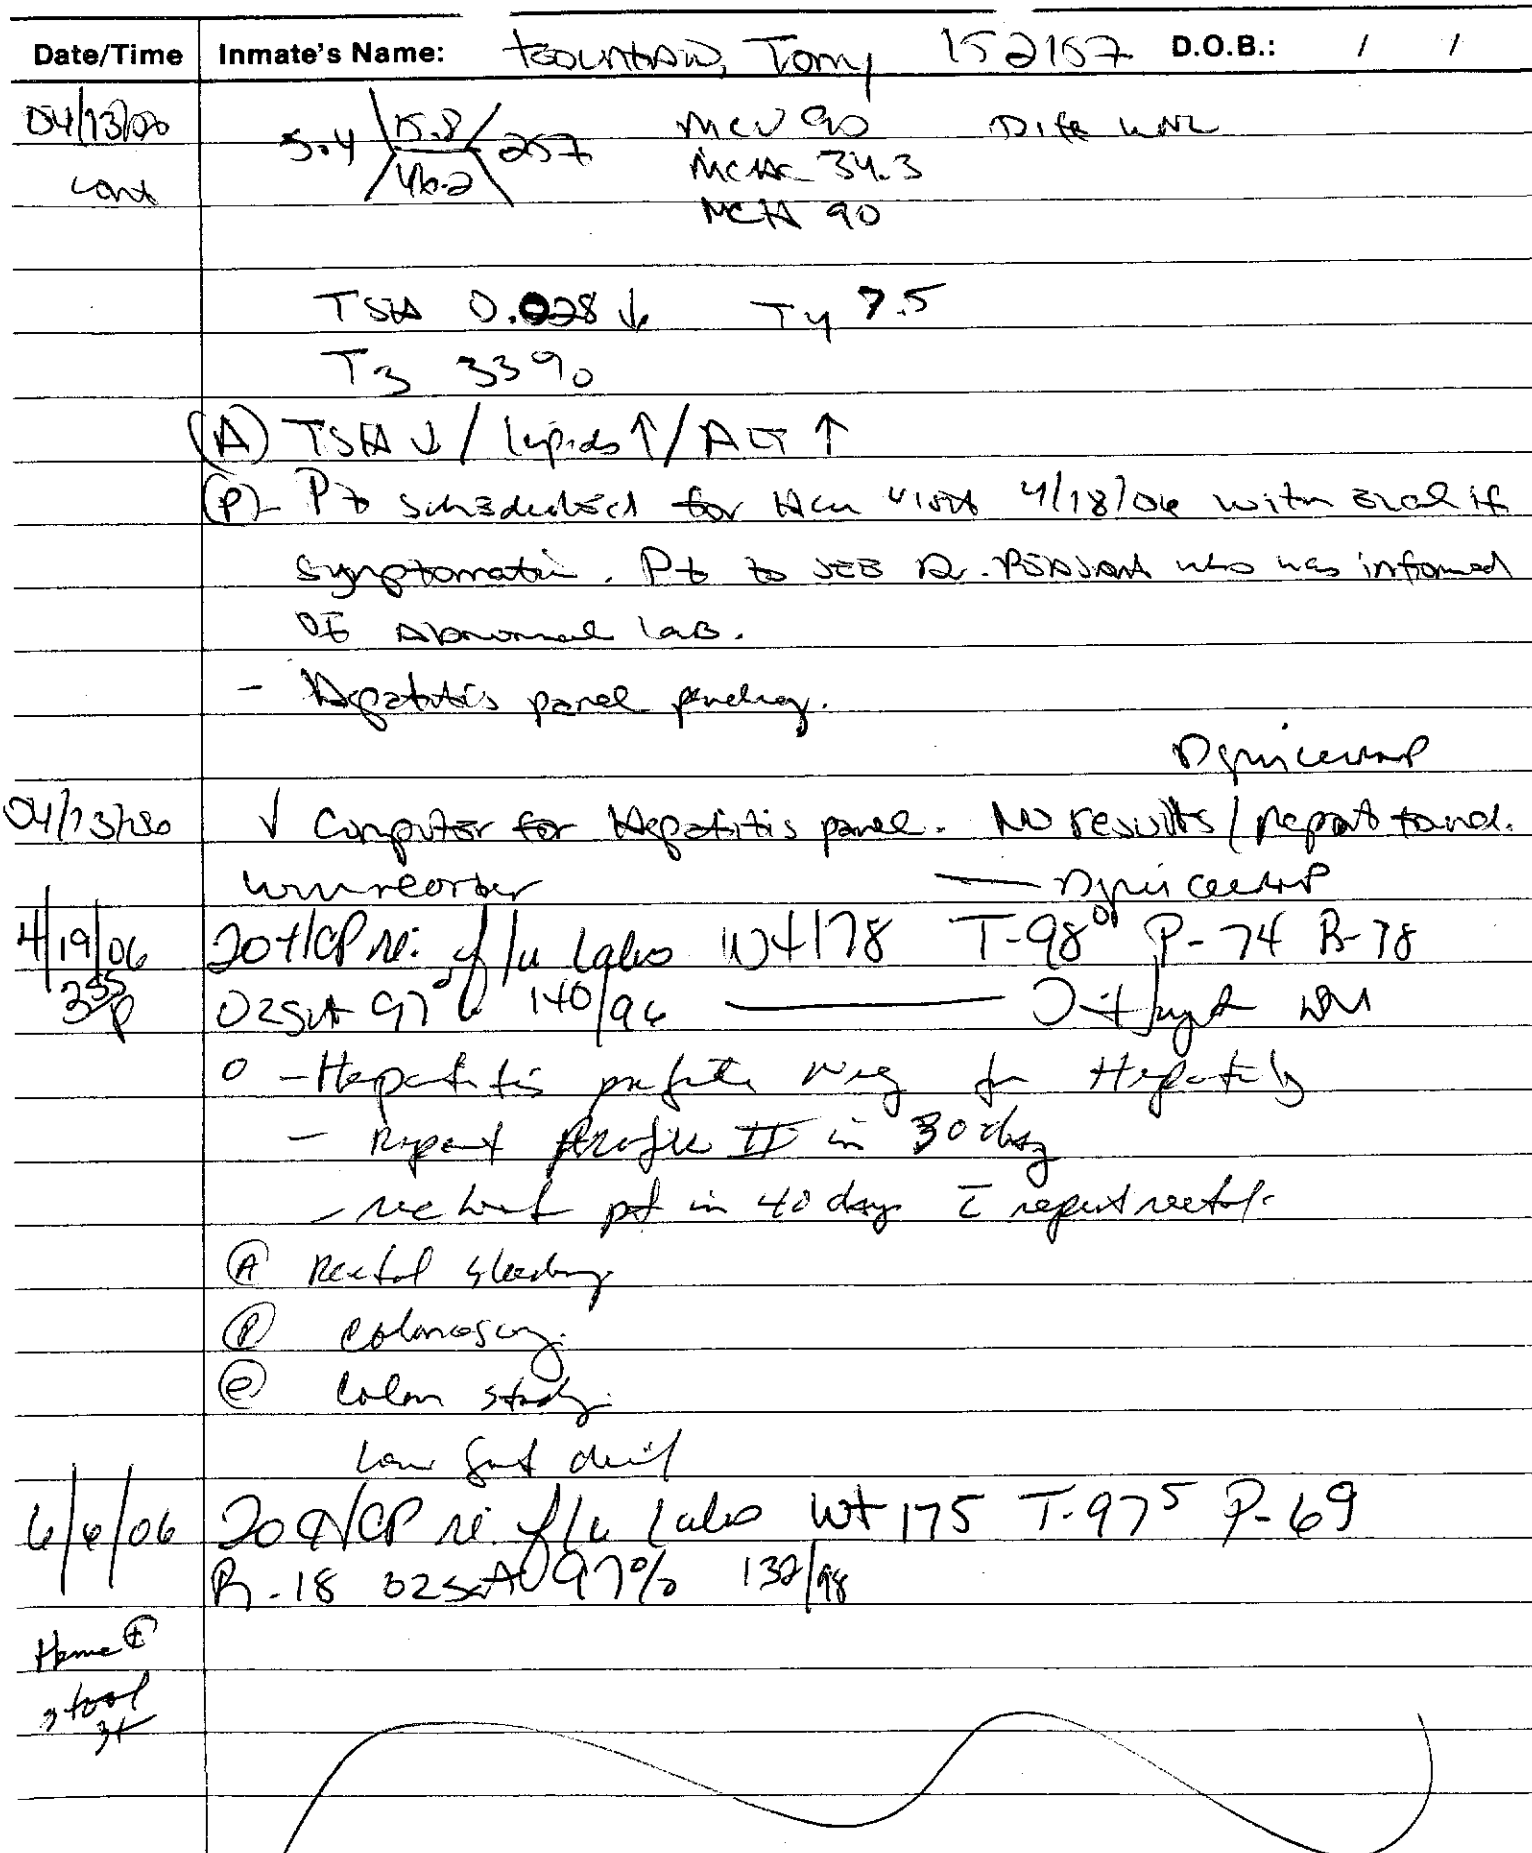 Date/Time Inmate's Name: Fountain, Tony 152157 D.O.B.: / /
04/13/06 5.4 15.8 257 MCV 90 Diff WNL
46.2 MCHC 34.3
cont MCH 90
TSH 0.028 ↓ T4 7.5
T3 3390
(A) TSH ↓ / lipids ↑ / ALT ↑
(P) - Pt scheduled for HCU visit 4/18/06 with eval if
symptomatic. Pt to see Dr. who was informed
of Abnormal lab.
- Hepatitis panel pending.
04/13/06 √ Computer for Hepatitis panel. No results / report found.
will reorder
4/19/06 to HCP re: f/u labs Wt 178 T-98⁰ P-74 R-18
3⁵⁵ p O2 Sat 97% 140/96
O - Hepatitis profile neg for Hepatitis
- Repeat Profile II in 30 days
- recheck pt in 40 days c̄ repeat rectal.
(A) Rectal bleeding
(P) colonoscopy.
(e) Colon study.
Low fat diet
6/6/06 to HCP re: f/u labs Wt 175 T-97⁵ P-69
R-18 O2 sat 97% 132/98
Heme +
stool
3+